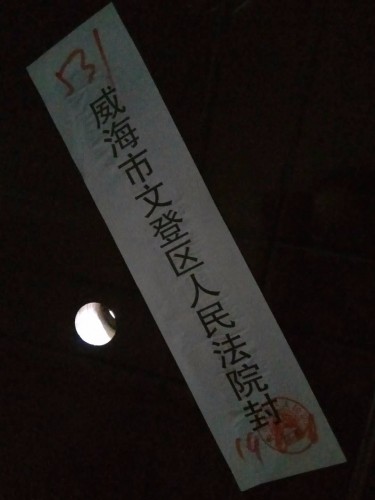 531
威海市文登区人民法院封